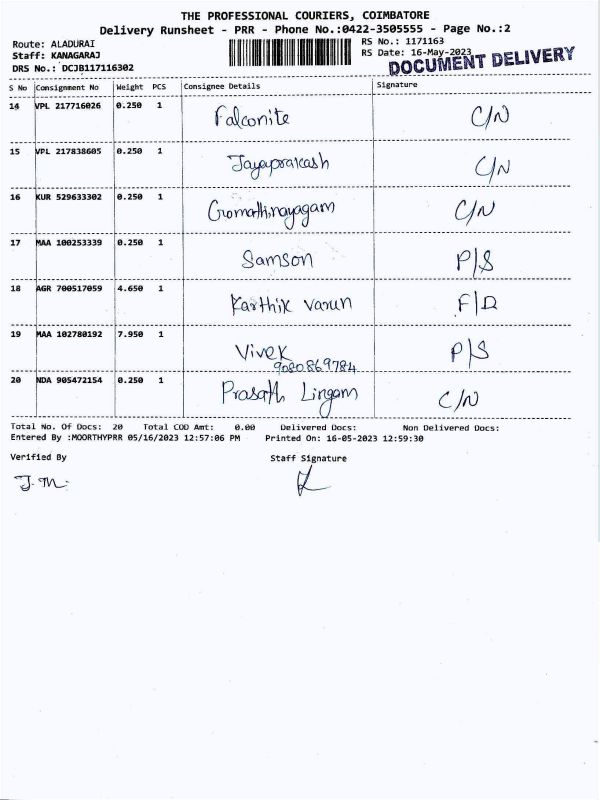 THE PROFESSIONAL COURIERS, COIMBATORE
Delivery Runsheet - PRR - Phone No.:0422-3505555 - Page No.:2
Route: ALADURAI RS No.: 1171163
Staff: KANAGARAJ RS Date: 16-May-2023
DRS No.: DCJB117116302 DOCUMENT DELIVERY
S No Consignment No Weight PCS Consignee Details Signature
14 VPL 217716026 0.250 1 Falconite C/N
15 VPL 217838605 0.250 1 Jayaprakash C/N
16 KUR 529633302 0.250 1 Gomathinayagam C/N
17 MAA 100253339 0.250 1 Samson P/S
18 AGR 700517059 4.650 1 Karthik varun F/D
19 MAA 102780192 7.950 1 Vivek P/S
9080869784
20 NDA 905472154 0.250 1 Prasath Lingam C/N
Total No. Of Docs: 20 Total COD Amt: 0.00 Delivered Docs: Non Delivered Docs:
Entered By :MOORTHYPRR 05/16/2023 12:57:06 PM Printed On: 16-05-2023 12:59:30
Verified By Staff Signature
J.M.